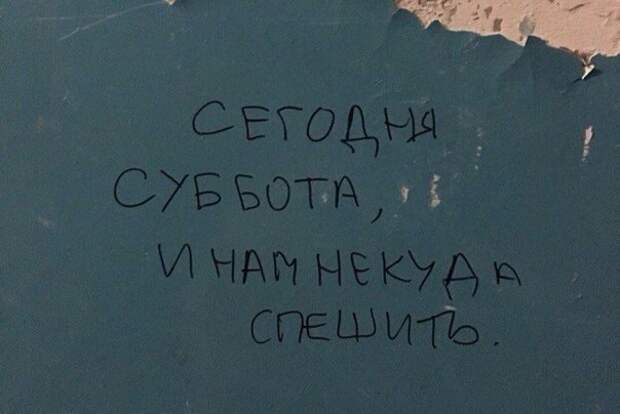 СЕГОДНЯ
СУББОТА,
И НАМ НЕКУДА
СПЕШИТЬ.